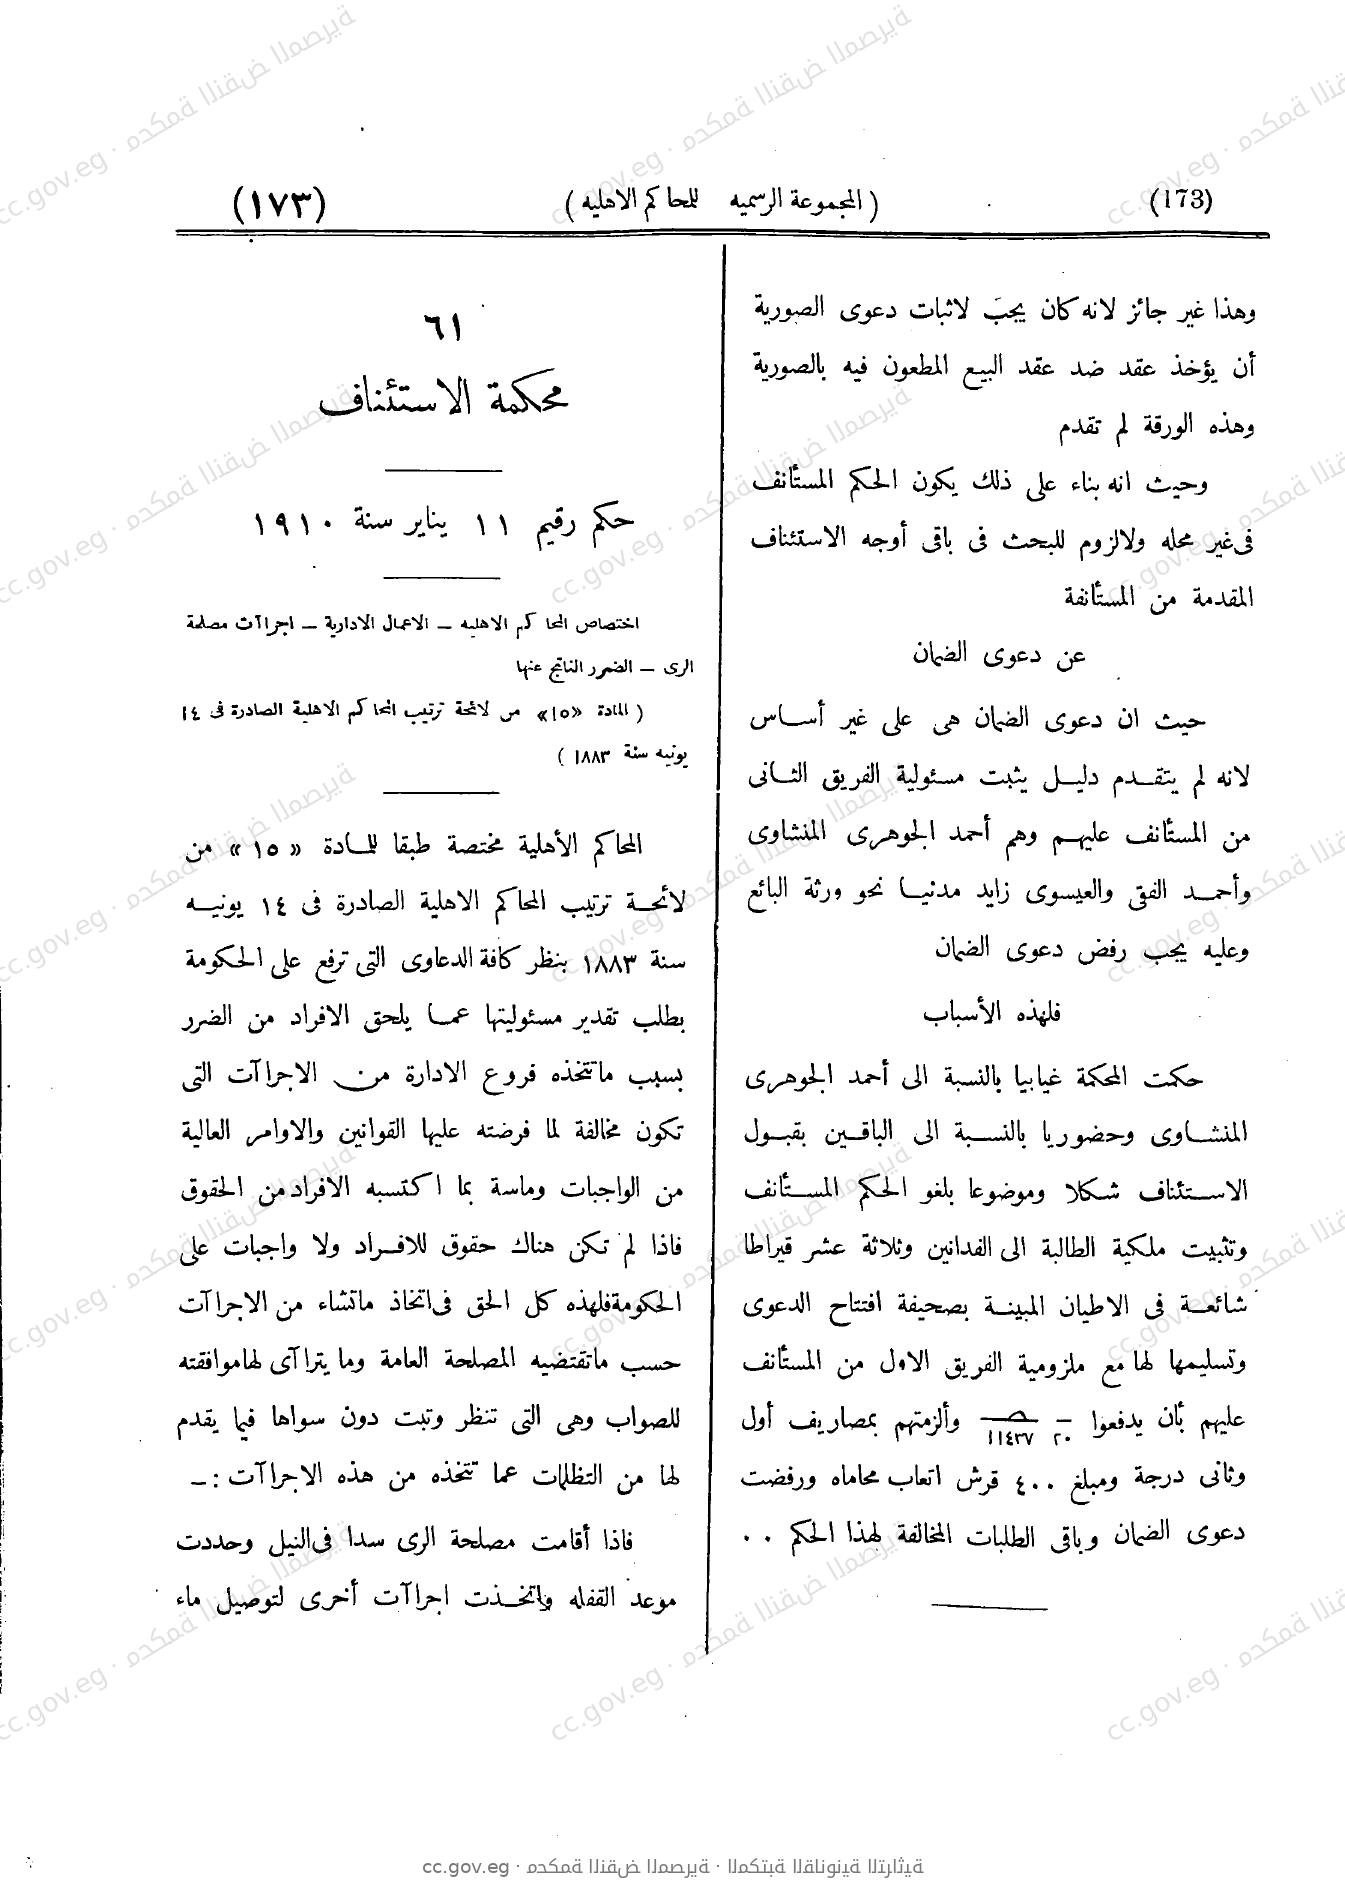 (173) ( المجموعة الرسميه للمحاكم الاهليه ) (١٧٣)
وهذا غير جائز لانه كان يجب لاثبات دعوى الصورية
أن يؤخذ عقد ضد عقد البيع المطعون فيه بالصورية
وهذه الورقة لم تقدم
وحيث انه بناء على ذلك يكون الحكم المستأنف
فى غير محله ولا لزوم للبحث فى باقى أوجه الاستئناف
المقدمة من المستأنفة
عن دعوى الضمان
حيث ان دعوى الضمان هى على غير أساس
لانه لم يتقدم دليل يثبت مسئولية الفريق الثانى
من المستأنف عليهم وهم أحمد الجوهرى المنشاوى
وأحمد الفقى والعيسوى زايد مدنيا نحو ورثة البائع
وعليه يجب رفض دعوى الضمان
فلهذه الأسباب
حكمت المحكمة غيابيا بالنسبة الى أحمد الجوهرى
المنشاوى وحضوريا بالنسبة الى الباقين بقبول
الاستئناف شكلا وموضوعا بلغو الحكم المستأنف
وتثبيت ملكية الطالبة الى الفدانين وثلاثة عشر قيراطا
شائعة فى الاطيان المبينة بصحيفة افتتاح الدعوى
وتسليمها لها مع ملزومية الفريق الاول من المستأنف
عليهم بأن يدفعوا ٢٠ ١١٤٣٧ وألزمتهم بمصاريف أول
وثانى درجة ومبلغ ٤٠٠ قرش اتعاب محاماه ورفضت
دعوى الضمان وباقى الطلبات المخالفة لهذا الحكم ..
٦١
محكمة الاستئناف
حكم رقيم ١١ يناير سنة ١٩١٠
اختصاص المحاكم الاهليه – الاعمال الادارية – اجراآت مصلحة
الرى – الضرر الناتج عنها
( المادة «١٥» من لائحة ترتيب المحاكم الاهلية الصادرة فى ١٤
يونيه سنة ١٨٨٣ )
المحاكم الأهلية مختصة طبقا للمادة « ١٥ » من
لائحة ترتيب المحاكم الاهلية الصادرة فى ١٤ يونيه
سنة ١٨٨٣ بنظر كافة الدعاوى التى ترفع على الحكومة
بطلب تقدير مسئوليتها عما يلحق الافراد من الضرر
بسبب ماتتخذه فروع الادارة من الاجراآت التى
تكون مخالفة لما فرضته عليها القوانين والاوامر العالية
من الواجبات وماسة بما اكتسبه الافراد من الحقوق
فاذا لم تكن هناك حقوق للافراد ولا واجبات على
الحكومة فلهذه كل الحق فى اتخاذ ماتشاء من الاجراآت
حسب ماتقتضيه المصلحة العامة وما يتراآى لها موافقته
للصواب وهى التى تنظر وتبت دون سواها فيما يقدم
لها من التظلمات عما تتخذه من هذه الاجراآت : –
فاذا أقامت مصلحة الرى سدا فى النيل وحددت
موعد القفله واتخذت اجراآت أخرى لتوصيل ماء
cc.gov.eg · محكمة النقض المصرية · المكتبة القانونية التراثية